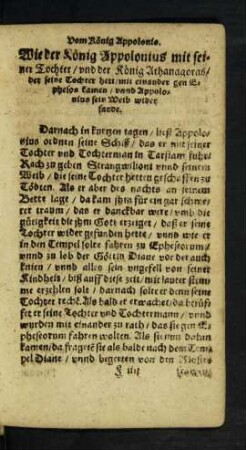 Vom König Appolonio.
Wie der König Appolonius mit sei-
ner Tochter / vnd der König Athanagoras /
der seine Tochter hett / mit einander gen E-
phesos kamen / vnnd Appolo-
nius sein Weib wider
fande.
Darnach in kurtzen tagen / ließ Appolo-
nius ordnen seine Schiff / das er mit seiner
Tochter vnd Tochterman in Tarsiam fuhr /
Rach zu geben Stranguilioni vnnd seinem
Weib / die seine Tochter hetten geschaffen zu
Tödten. Als er aber des nachts an seinem
Bette lage / da kam jhm für ein gar schwe-
rer traum / das er danckbar were / vmb die
gütigkeit die jhm Gott erzeiget / daß er seine
Tochter wider gefunden hette / vnd wie er
in den Tempel solte fahren zu Ephesorum /
vnnd zu lob der Göttin Diane vor der auch
knien / vnnd alles sein vngefell von seiner
Kindheit / biß auff diese zeit / mit lauter stim-
me erzehlen solt / darnach solte er denn seine
Tochter rechē. Als bald er erwachet / da berüff
fet er seine Tochter vnd Tochtermann / vnnd
wurden mit einander zu rath / das sie gen E-
phesorum fahren wolten. Als sie nun dahin
kamen / da fragetē sie als balde nach dem Tem-
pel Diane / vnnd begerten von den